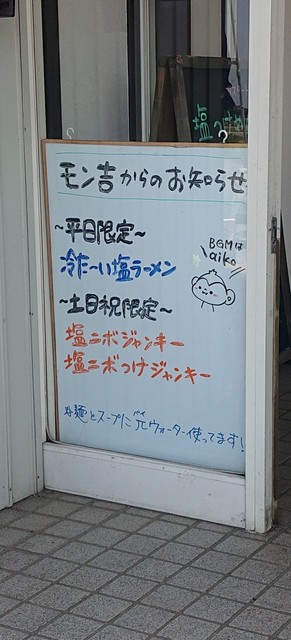 塩つけ
モン吉からのお知らせ
~平日限定~
BGMは
aiko
冷た~い塩ラーメン
~土日祝限定~
塩ニボジャンキー
塩ニボつけジャンキー
麺とスープにπウォーター使ってます!
パイ